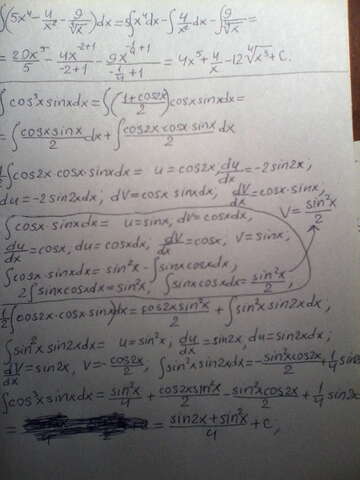 ∫(5x⁴ - 4/x² - 9/∜x)dx = 5∫x⁴dx - ∫4/x² dx - ∫9/∜x =
= 20x⁵/5 - 4x^(-2+1)/(-2+1) - 9x^(-1/4+1)/(-1/4+1) = 4x⁵ + 4/x - 12∜x³ + C.
∫cos³x sinxdx = ∫((1+cos2x)/2)cosx sinxdx =
= ∫(cosx sinx)/2 dx + ∫(cos2x cosx sinx)/2 dx
1/2∫cos2x cosx sinxdx = u = cos2x, du/dx = -2sin2x;
du = -2sin2xdx; dV = cosx sinxdx, dV/dx = cosx·sinx,
∫cosx·sinxdx = u = sinx, dV = cosxdx, V = sin²x/2
du/dx = cosx, du = cosxdx, dV/dx = cosx, V = sinx,
∫cosx sinxdx = sin²x - ∫sinxcosxdx,
2∫sinxcosxdx = sin²x, ∫sinxcosxdx = sin²x/2,
1/2∫(cos2x·cosx·sinx)dx = cos2x sin²x/2 + ∫sin²x sin2xdx,
∫sin²x sin2xdx = u = sin²x, du/dx = sin2x, du = sin2xdx,
dV/dx = sin2x, V = -cos2x/2, ∫sin²x sin2xdx = -sin²xcos2x/2 + 1/4 sin2
∫cos³x sinxdx = sin²x/4 + cos2xsin²x/2 - sin²xcos2x/2 + 1/4 sin2x
= = (sin2x + sin²x)/4 + C,